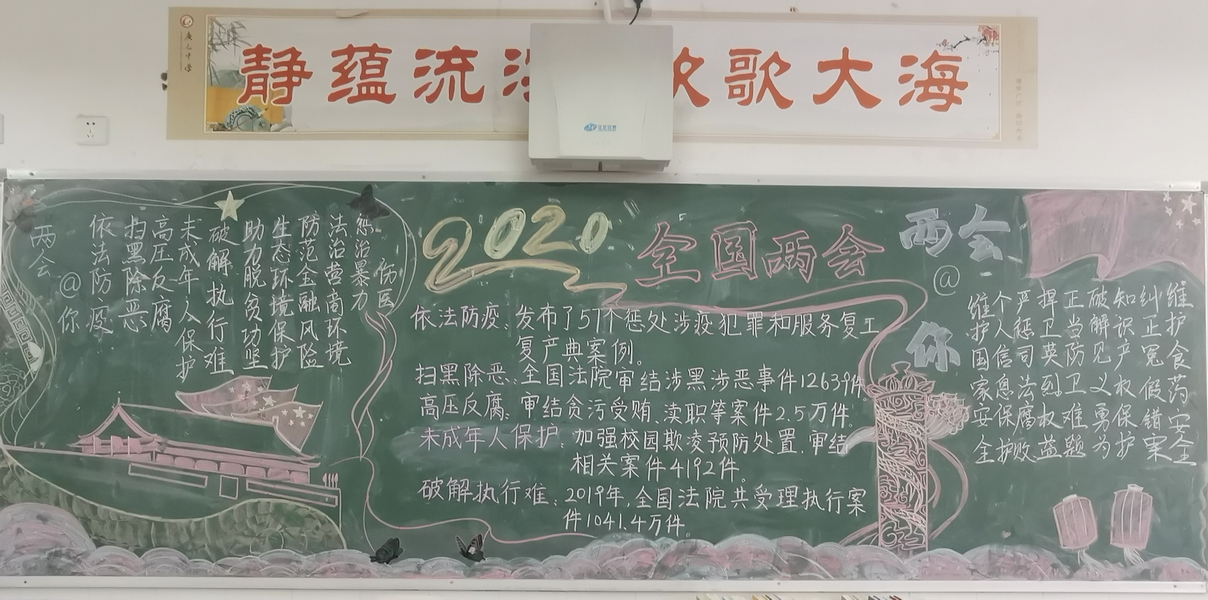 静蕴流歌大海
两会
@你
依法防疫
扫黑除恶
高压反腐
未成年人保护
破解执行难
助力脱贫功坚
生态环境保护
防范金融风险
法治营商环境
惩治暴力
伤医
2020
全国两会
依法防疫:发布了57个惩处涉疫犯罪和服务复工
复产典案例。
扫黑除恶:全国法院审结涉黑涉恶事件12639件
高压反腐:审结贪污受贿、渎职等案件2.5万件。
未成年人保护:加强校园欺凌预防处置,审结
相关案件4192件。
破解执行难:2019年,全国法院共受理执行案
件1041.4万件。
两会
@
你
维护国家安全
个人信息保护
严惩司法腐败
捍卫英烈权益
正当防卫难题
破解见义勇为
知识产权保护
纠正冤假错案
维护食药安全